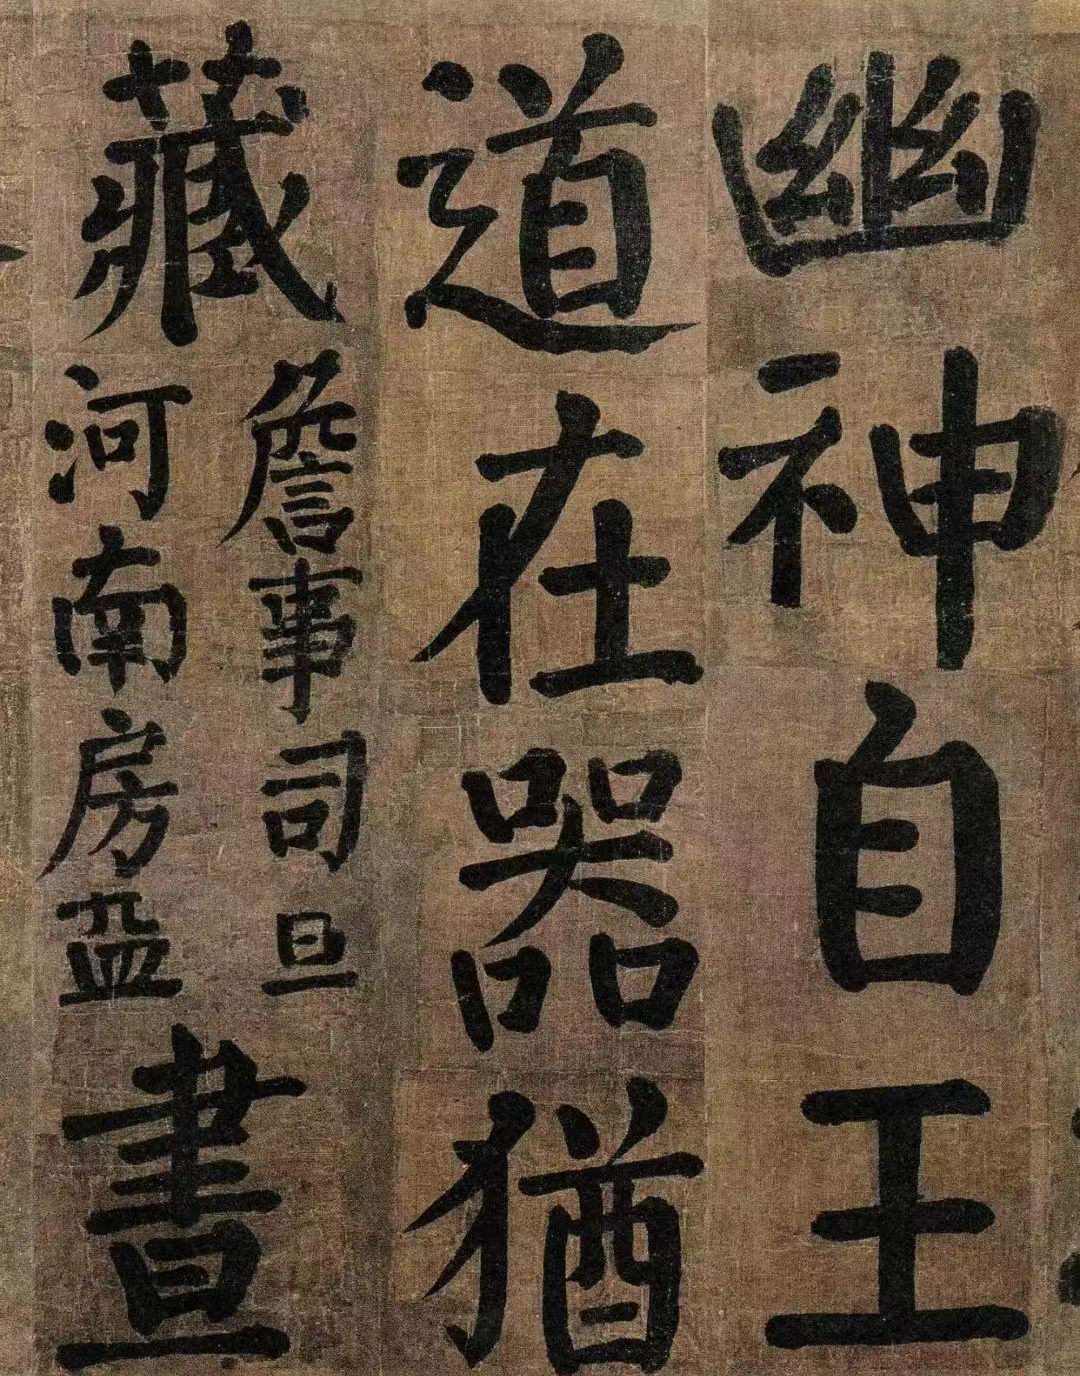 幽神自王
道在器猶
藏
詹事司旦
河南房
晝